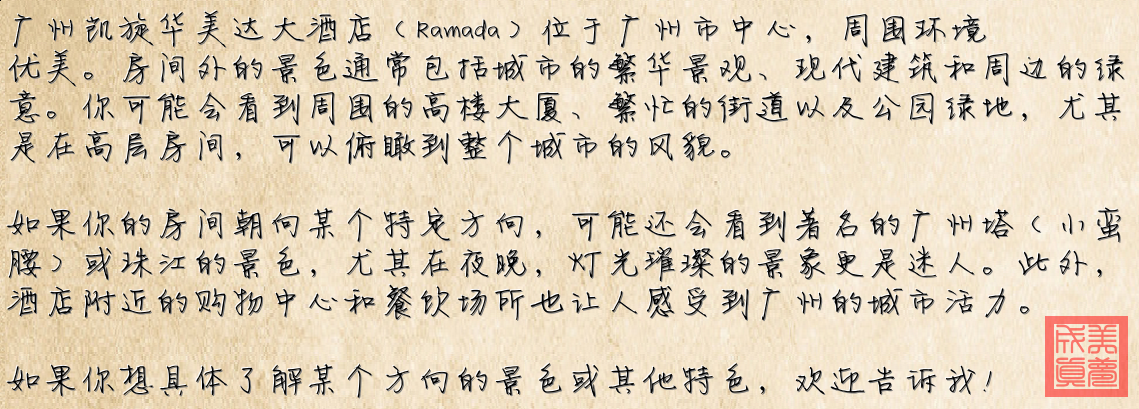 广州凯旋华美达大酒店（Ramada）位于广州市中心，周围环境
优美。房间外的景色通常包括城市的繁华景观、现代建筑和周边的绿
意。你可能会看到周围的高楼大厦、繁忙的街道以及公园绿地，尤其
是在高层房间，可以俯瞰到整个城市的风貌。
如果你的房间朝向某个特定方向，可能还会看到著名的广州塔（小蛮
腰）或珠江的景色，尤其在夜晚，灯光璀璨的景象更是迷人。此外，
酒店附近的购物中心和餐饮场所也让人感受到广州的城市活力。
如果你想具体了解某个方向的景色或其他特色，欢迎告诉我！